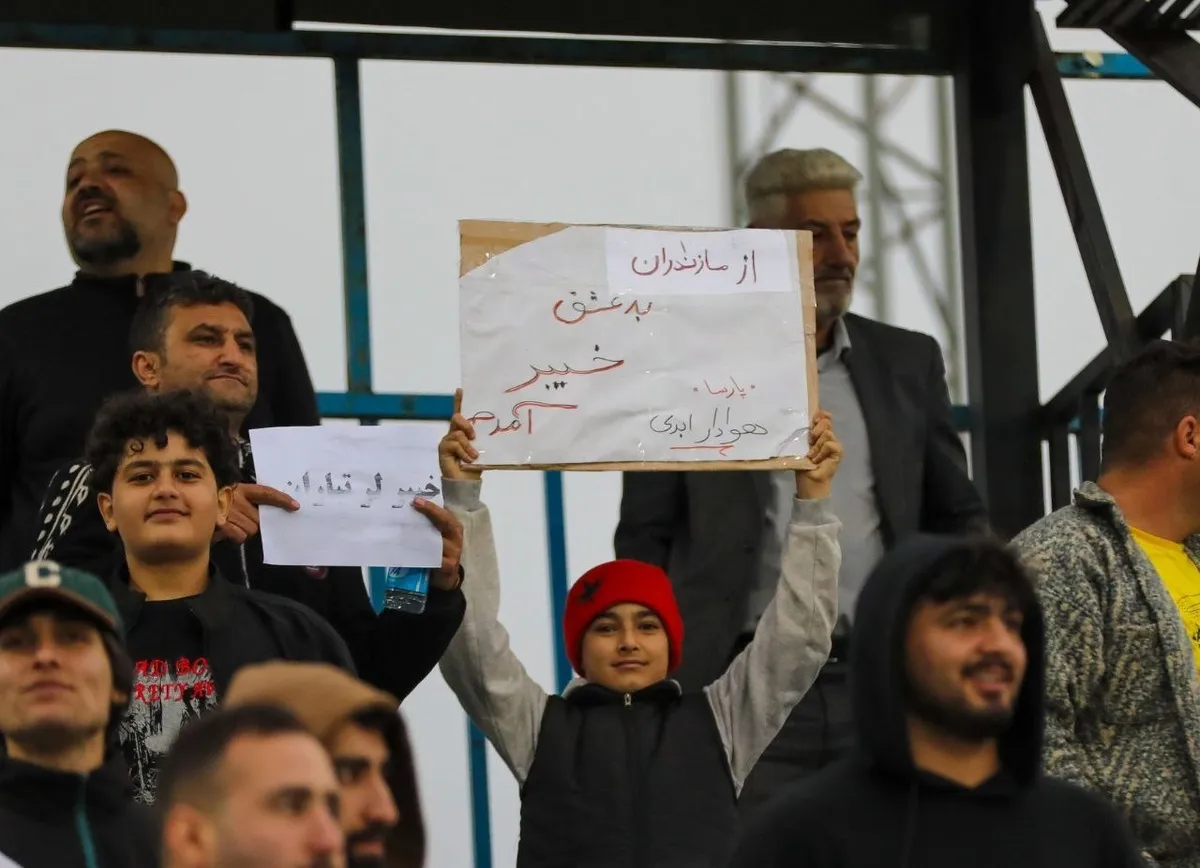 از مازندران
به عشق
خیبر
آمدم
پارسا
هوادار ابدی
خیبر لر تباران
C